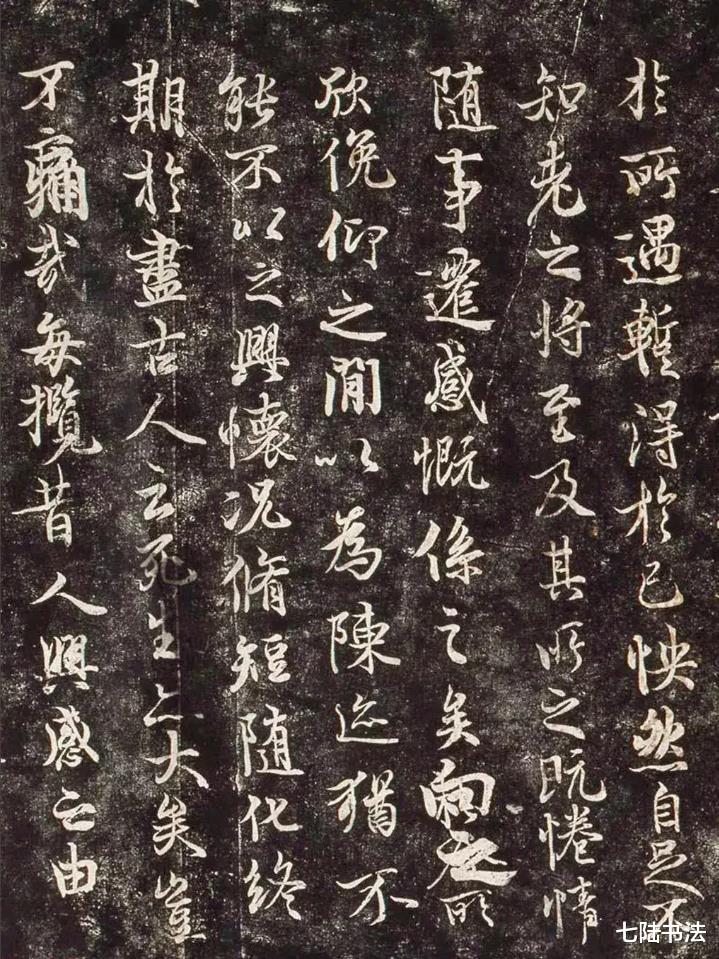 於所遇暫得於己怏然自足不
知老之將至及其所之既惓情
隨事遷感慨係之矣向之所
欣俛仰之閒以為陳迹猶不
能不以之興懷況脩短隨化終
期於盡古人云死生亦大矣豈
不痛哉每攬昔人興感之由
七陆书法